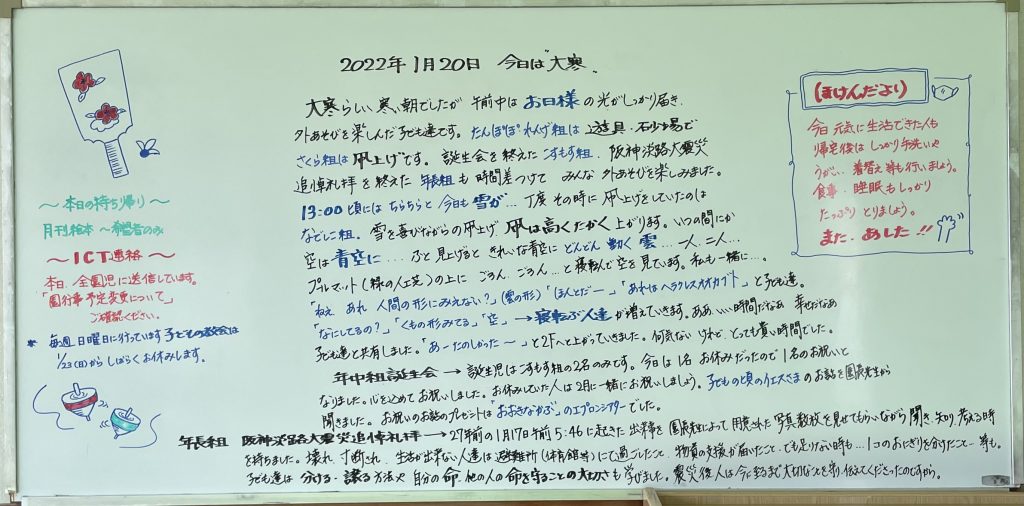 2022年1月20日 今日は"大寒"
大寒らしい寒い朝でしたが 午前中は お日様 の光がしっかり届き
外あそびを楽しんだ子ども達です。たんぽぽ れんげ組は 遊具・石少場で
さくら組は 凧上げです。誕生会を終えた こすもす組、阪神淡路大震災
追悼礼拝を終えた 年長組も 時間差つけて みんな外あそびを楽しみました。
13:00頃には ちらちらと 今日も 雪が… 丁度その時に 凧上げをしていたのは
なでしこ組。雪を喜びながらの凧上げ 凧は高くたかく上がります。いつの間にか
空は 青空に…. ふと見上げると きれいな青空に どんどん 動く 雲… 一人、二人…
プルマット(緑の人工芝)の上に ごろん ごろん…と寝転んで空を見ています。私も一緒に…。
「ねえ あれ 人間の形にみえない?」(雲の形)「ほんとだー」「あれは ヘラクレスオオカブト」と子ども達。
「なにしてるの?」「くもの形みてる」「空」→寝転ぶ人達が増えていきます。ああ いい時間だなあ 幸せだなあ
子ども達と共有しました。「あーたのしかった〜」と2Fへと上がっていきました。何気ない けれど、とっても貴い時間でした。
年中組誕生会 → 誕生児はこすもす組の2名のみです。今日は1名 お休みだったので1名のお祝いと
なりました。心を込めてお祝いしました。お休みしていた人は2月に一緒にお祝いしましょう。子どもの頃のイエスさまのお話を園長先生から
聞きました。お祝いのお話のプレゼントは「おおきなかぶ」のエプロンシアターでした。
年長組 阪神淡路大震災追悼礼拝→27年前の1月17日午前5:46に起きた出来事を 園長先生によって用意された写真教材を見せてもらいながら 聞き、知り、考える時
を持ちました。壊れ、寸断され、生活が出来ない人達は避難所(体育館等)にて過ごしたこと、物資の支援が届いたこと、でも足りない時も…1コのおにぎりを分けたこと…等も。
子ども達は 分ける・譲る方法や 自分の命、他の人の命を守ることの大切さも学びました。震災後人は今に至るまで大切なことを
〜本日の持ち帰り〜
月刊絵本 〜希望者のみ
〜ICT連絡〜
本日、全園児に送信しています。
「園行事予定変更について」
ご確認ください。
* 毎週日曜日に行っています子どもの教会は
1/23(日)からしばらくお休みします。
(ほけんだより)
今日 元気に生活できた人も
帰宅後は しっかり手洗いや
うがい、着替え等も行いましょう。
食事、睡眠もしっかり
たっぷり とりましょう。
また、あした!!